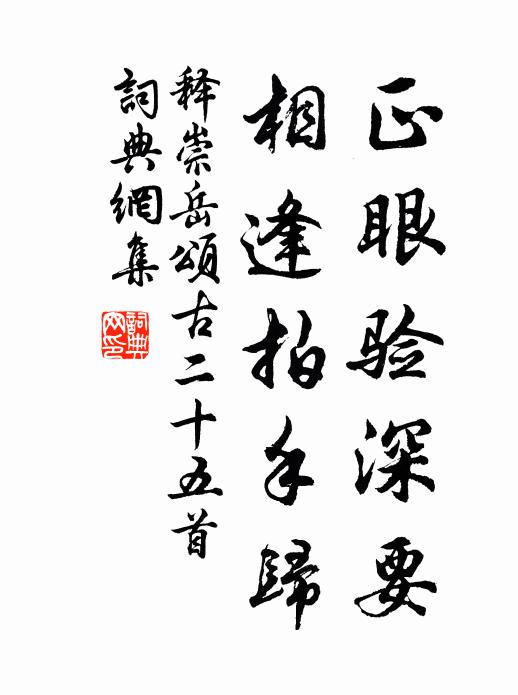 正眼验深要
相逢拍手歸
释崇岳頌古二十五首
詞典網集
詞典網印